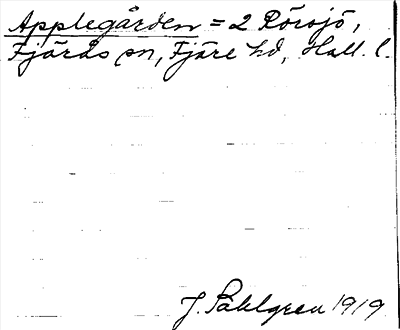 Applegården = 2 Rörsjö,
Fjärås sn, Fjäre hd, Hall. l.
J. Påhlgren 1919